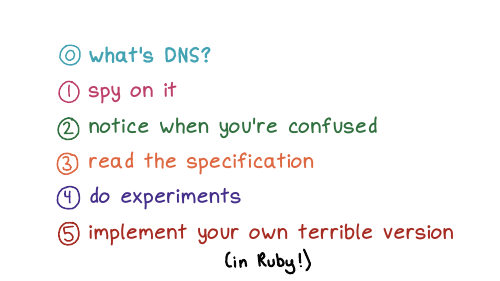 0 what's DNS?
1 spy on it
2 notice when you're confused
3 read the specification
4 do experiments
5 implement your own terrible version
(in Ruby!)